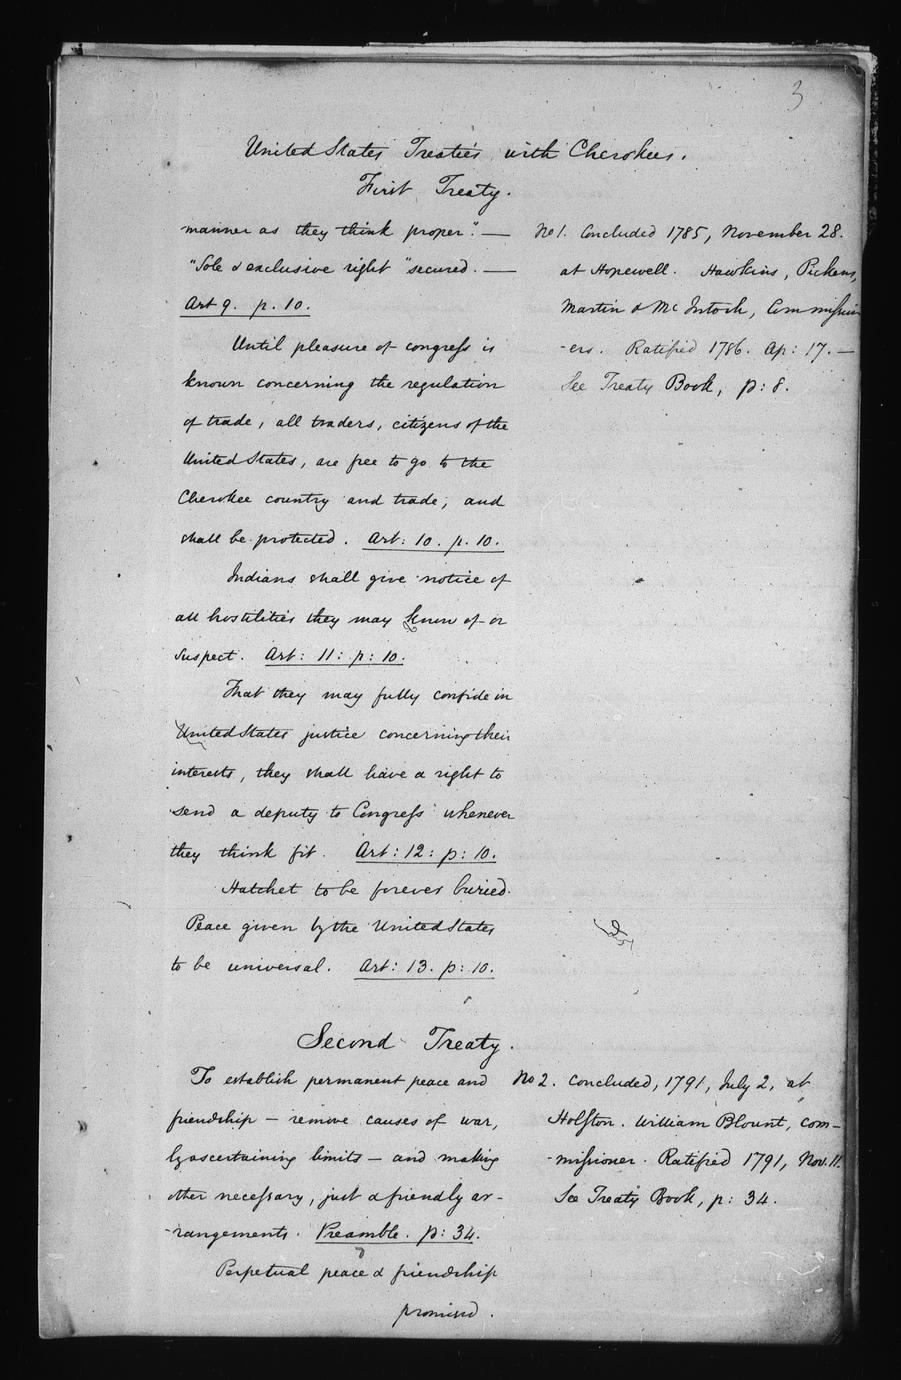 3
United States Treaties with Cherokees.
First Treaty.
manner as they think proper". —
"Sole & exclusive right" secured. —
Art 9. p. 10.
Until pleasure of congress is
known concerning the regulation
of trade, all traders, citizens of the
United States, are free to go to the
Cherokee country and trade, and
shall be protected. Art: 10. p. 10.
Indians shall give notice of
all hostilities they may know of or
suspect. Art: 11: p: 10.
That they may fully confide in
United States justice concerning their
interests, they shall have a right to
send a deputy to Congress whenever
they think fit. Art: 12: p: 10.
Hatchet to be forever buried.
Peace given by the United States
to be universal. Art: 13. p: 10.
No 1. Concluded 1785, November 28.
at Hopewell. Hawkins, Pickens,
Martin & Mc Intosh, Commission
-ers. Ratified 1786. Ap: 17. —
See Treaty Book, p: 8.
Second Treaty.
To establish permanent peace and
friendship — remove causes of war,
by ascertaining limits — and making
other necessary, just & friendly ar-
-rangements. Preamble. p: 34.
Perpetual peace & friendship
promised.
No 2. Concluded, 1791, July 2, at
Holston. William Blount, com-
-missioner. Ratified 1791, Nov. 11.
See Treaty Book, p: 34.